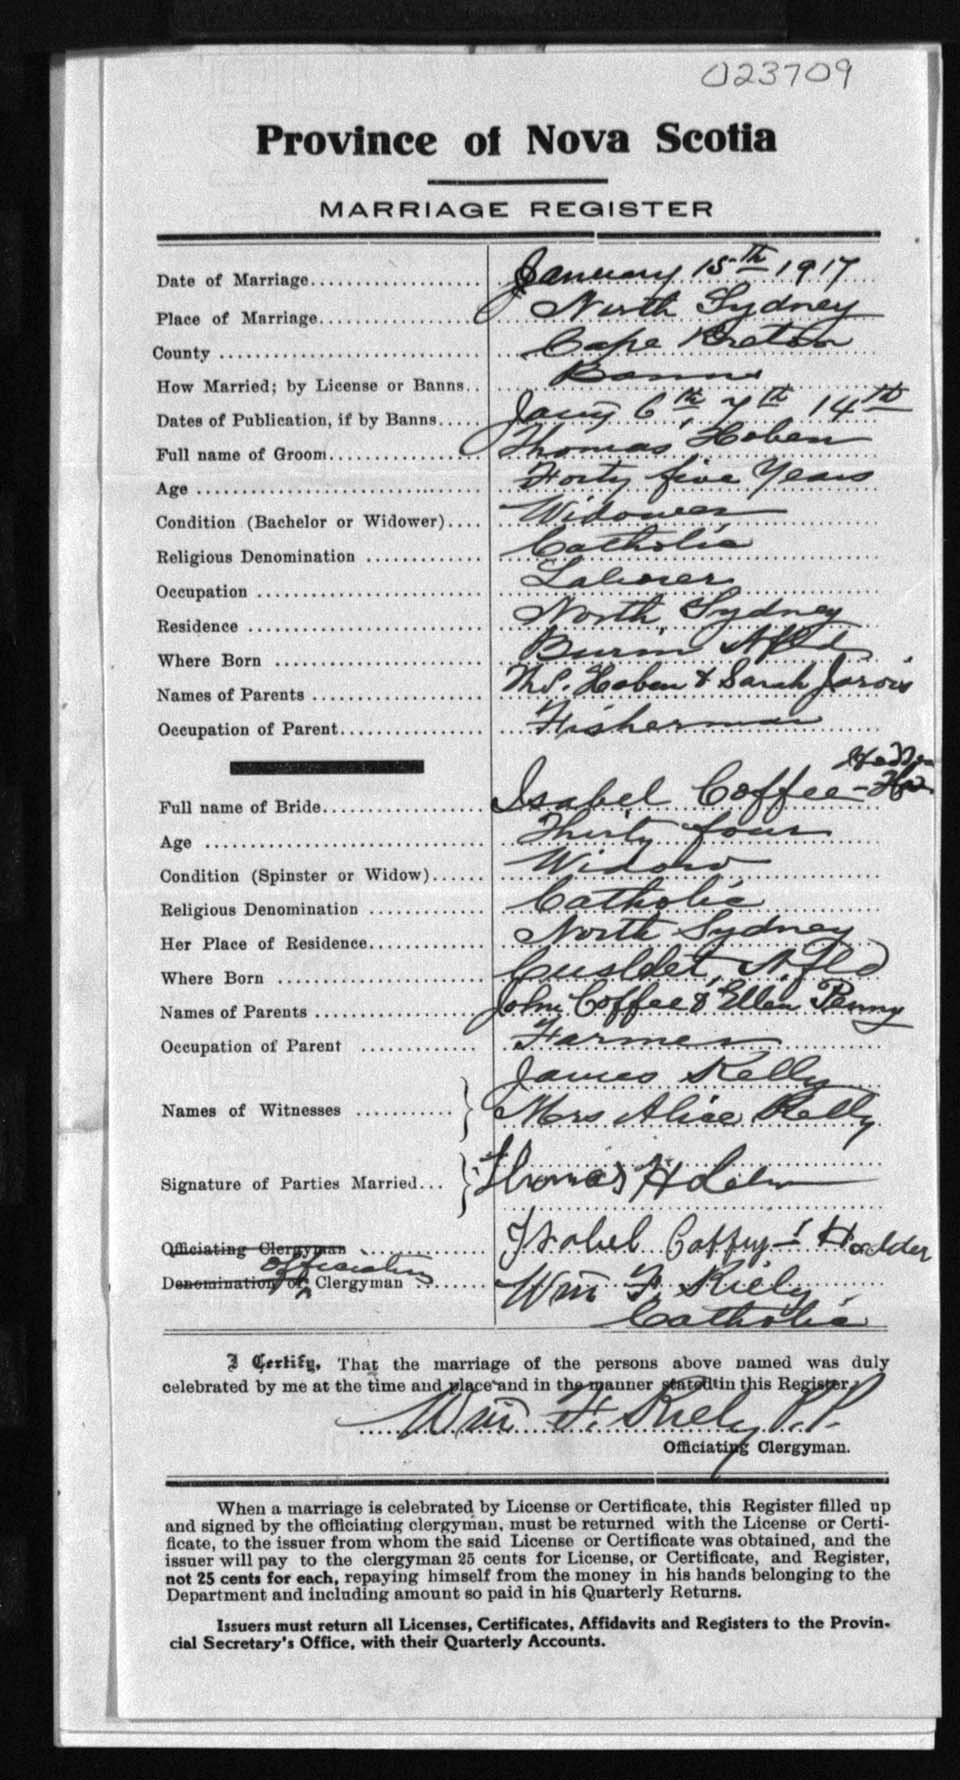 023709
Province of Nova Scotia
MARRIAGE REGISTER
Date of Marriage January 15th 1917
Place of Marriage North Sydney
County Cape Breton
How Married; by License or Banns Banns
Dates of Publication, if by Banns Jany 6th 7th 14th
Full name of Groom Thomas Hoben
Age Forty five Years
Condition (Bachelor or Widower) Widower
Religious Denomination Catholic
Occupation Laborer
Residence North Sydney
Where Born Burin Nfld
Names of Parents Ths. Hoben & Sarah Jarvis
Occupation of Parent Fisherman
Full name of Bride Isabel Coffee - Hodder
Age Thirty four
Condition (Spinster or Widow) Widow
Religious Denomination Catholic
Her Place of Residence North Sydney
Where Born Nfld
Names of Parents John Coffee & Ellen Penny
Occupation of Parent Farmer
James Kelly
Names of Witnesses Mrs Alice Kelly
Signature of Parties Married Thomas Hoben
Officiating Clergyman Isabel Coffey - Hodder
officiating
Denomination of Clergyman Wm F. Kiely
Catholic
I Certify, That the marriage of the persons above named was duly
celebrated by me at the time and place and in the manner stated in this Register.
Wm F. Kiely P.P.
Officiating Clergyman.
When a marriage is celebrated by License or Certificate, this Register filled up
and signed by the officiating clergyman, must be returned with the License or Certi-
ficate, to the issuer from whom the said License or Certificate was obtained, and the
issuer will pay to the clergyman 25 cents for License, or Certificate, and Register,
not 25 cents for each, repaying himself from the money in his hands belonging to the
Department and including amount so paid in his Quarterly Returns.
Issuers must return all Licenses, Certificates, Affidavits and Registers to the Provin-
cial Secretary's Office, with their Quarterly Accounts.